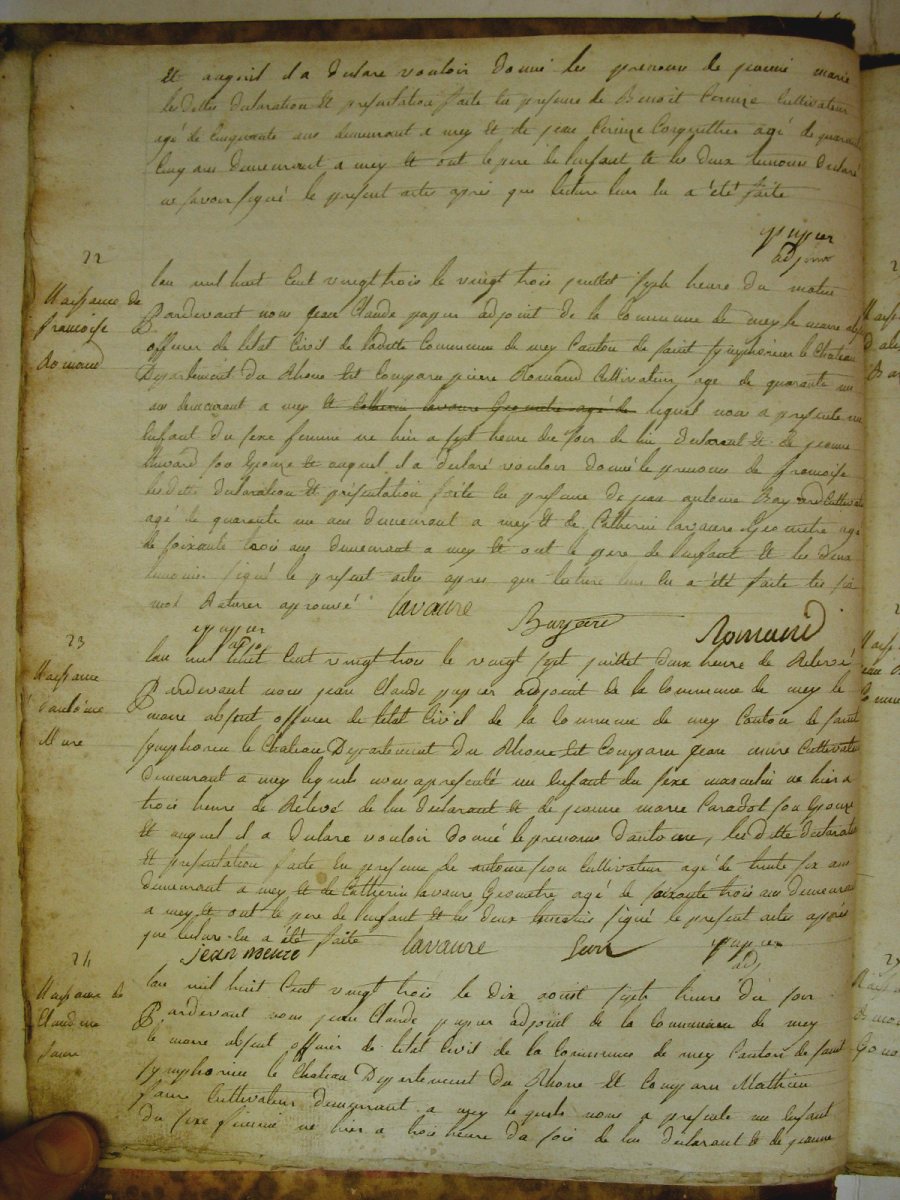 Et auquel il a declare vouloir donné les prenoms de jeanne marie
les dittes declaration Et presentation faite en presence de Benoit Cultivateur
agé de Cinquante ans demeurant a mey Et de jean agé de quarante
Cinq ans demeurant a mey Et ont le pere de lenfant Et les deux temoins declaré
ne savoir signé le present acte apres que lecture leur en a été faite
papier
adjoint
22
Naissance de
francoise
Romand
Lan mil huit Cent vingt trois le vingt trois juillet sept heure du matin
Pardevant nous jean Claude papier adjoint de la Commune de mey le maire absent
officier de letat Civil de laditte Commune de mey Canton de saint symphorien le Chateau
Departement du Rhone Est Comparu pierre Romand Cultivateur age de quarante un
ans demeurant a mey Et Catherin lavaure Geometre agé de lequel nous a presente un
Enfant du sexe feminin ne hier a sept heure du soir de lui declarant Et de jeanne
son Epouze Et auquel il a declaré vouloir donné le prenoms de francoise
les ditte declaration Et présentation faite En presence de jean antoine Bayard Cultivateur
agé de quarante un ans demeurant a mey Et de Catherin lavaure Geometre agé
de soixante trois ans demeurant a mey Et ont le pere de lenfant Et les deux
temoins signé le present actes apres que lecture leur en a été faite les six
mot Raturer aprouvé
lavaure
Bayard
Romand
papier
adjo
23
Naissance
dantoine
Mure
Lan mil huit Cent vingt trois le vingt sept juillet deux heure de Relevé
Pardevant nous jean Claude papier adjoint de la Commune de mey le
maire absent officier de letat Civil de la Commune de mey Canton de saint
symphorien le Chateau Departement du Rhone Est Comparu jean mure Cultivateur
demeurant a mey lequels nous a presenté un Enfant du sexe masculin ne hier a
trois heure de Relevé de lui declarant Et de jeanne marie son Epouze
Et auquel il a declare vouloir donné le prenoms dantoine, les ditte declaration
Et presentation faite En presence de antoine Cultivateur agé de trente six ans
demeurant a mey Et de Catherin lavaure Geometre agé de soixante trois ans demeurant
a mey Et ont le pere de lenfant Et les deux temoins signé le present actes après
que lecture en a été faite
jean meure
lavaure
papier
adj
24
Naissance de
Claudine
faure
Lan mil huit Cent vingt trois le dix aoust sept heure du soir
Pardevant nous jean Claude papier adjoint de la Commune de mey
le maire absent officier de letat Civil de la Commune de mey Canton de saint
symphorien le Chateau Departement du Rhone Est Comparu Mathieu
faure Cultivateur demeurant a mey lequels nous a presente un Enfant
du sexe feminin ne hier a trois heure du soir de lui declarant Et de jeanne